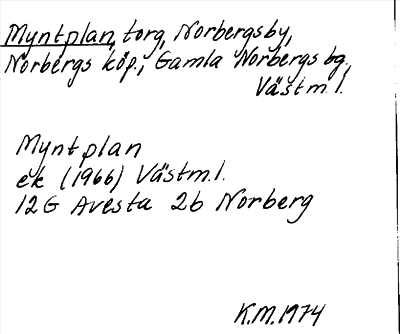 Myntplan, torg, Norbergsby,
Norbergs köp., Gamla Norbergs bg.,
Västm.l.
Myntplan
ek (1966) Västm.l.
12G Avesta 2b Norberg
K.M. 1974